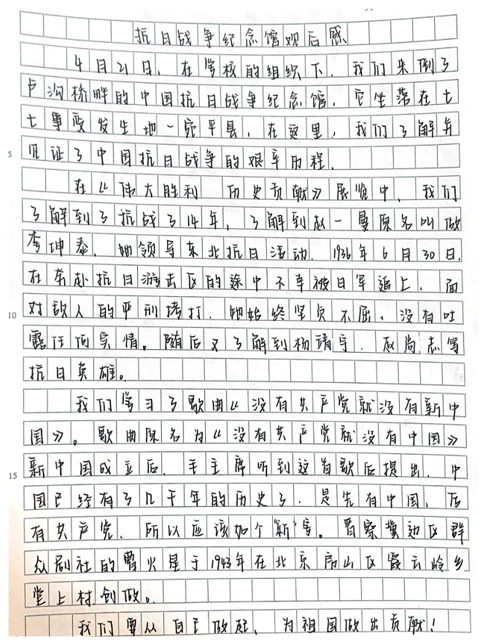 抗日战争纪念馆观后感
4月21日，在学校的组织下，我们来倒了
卢沟桥畔的中国抗日战争纪念馆，它坐落在七
七事变发生地一宛平县，在这里，我们了解并
5 见证了中国抗日战争的艰辛历程。
在《伟大胜利 历史贡献》展览中，我们
了解到了抗战了14年，了解到赵一曼原名叫做
李坤泰，她领导东北抗日活动，1936年6月30日，
在东赴抗日游击区的途中不幸被日军追上，面
10 对敌人的严刑拷打，她始终坚贞不屈，没有吐
露任何实情。随后又了解到杨靖宇、赵尚志等
抗日英雄。
我们学习了歌曲《没有共产党就没有新中
国》。歌曲原名为《没有共产党就没有中国》
15 新中国成立后，毛主席听到这首歌后提出，中
国已经有了几千年的历史了，是先有中国，后
有共产党，所以应该加个"新"字。晋察冀边区群
众剧社的曹火星于1943年在北京房山区霞云岭乡
堂上村创做。
我们要从自己做起，为祖国做出贡献！